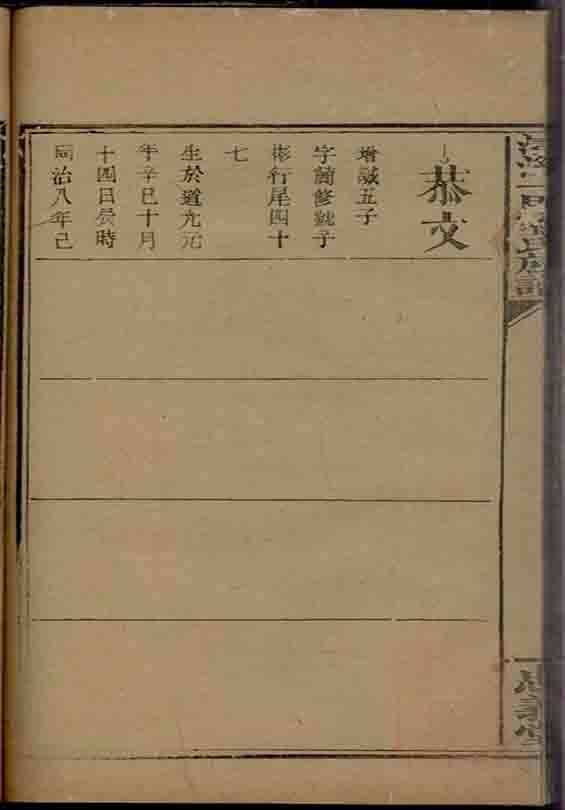 恭文
增諴五子
字簡修號子
彬行尾四十
七
生於道光元
年辛巳十月
十四日辰時
同治八年己
族譜
堂